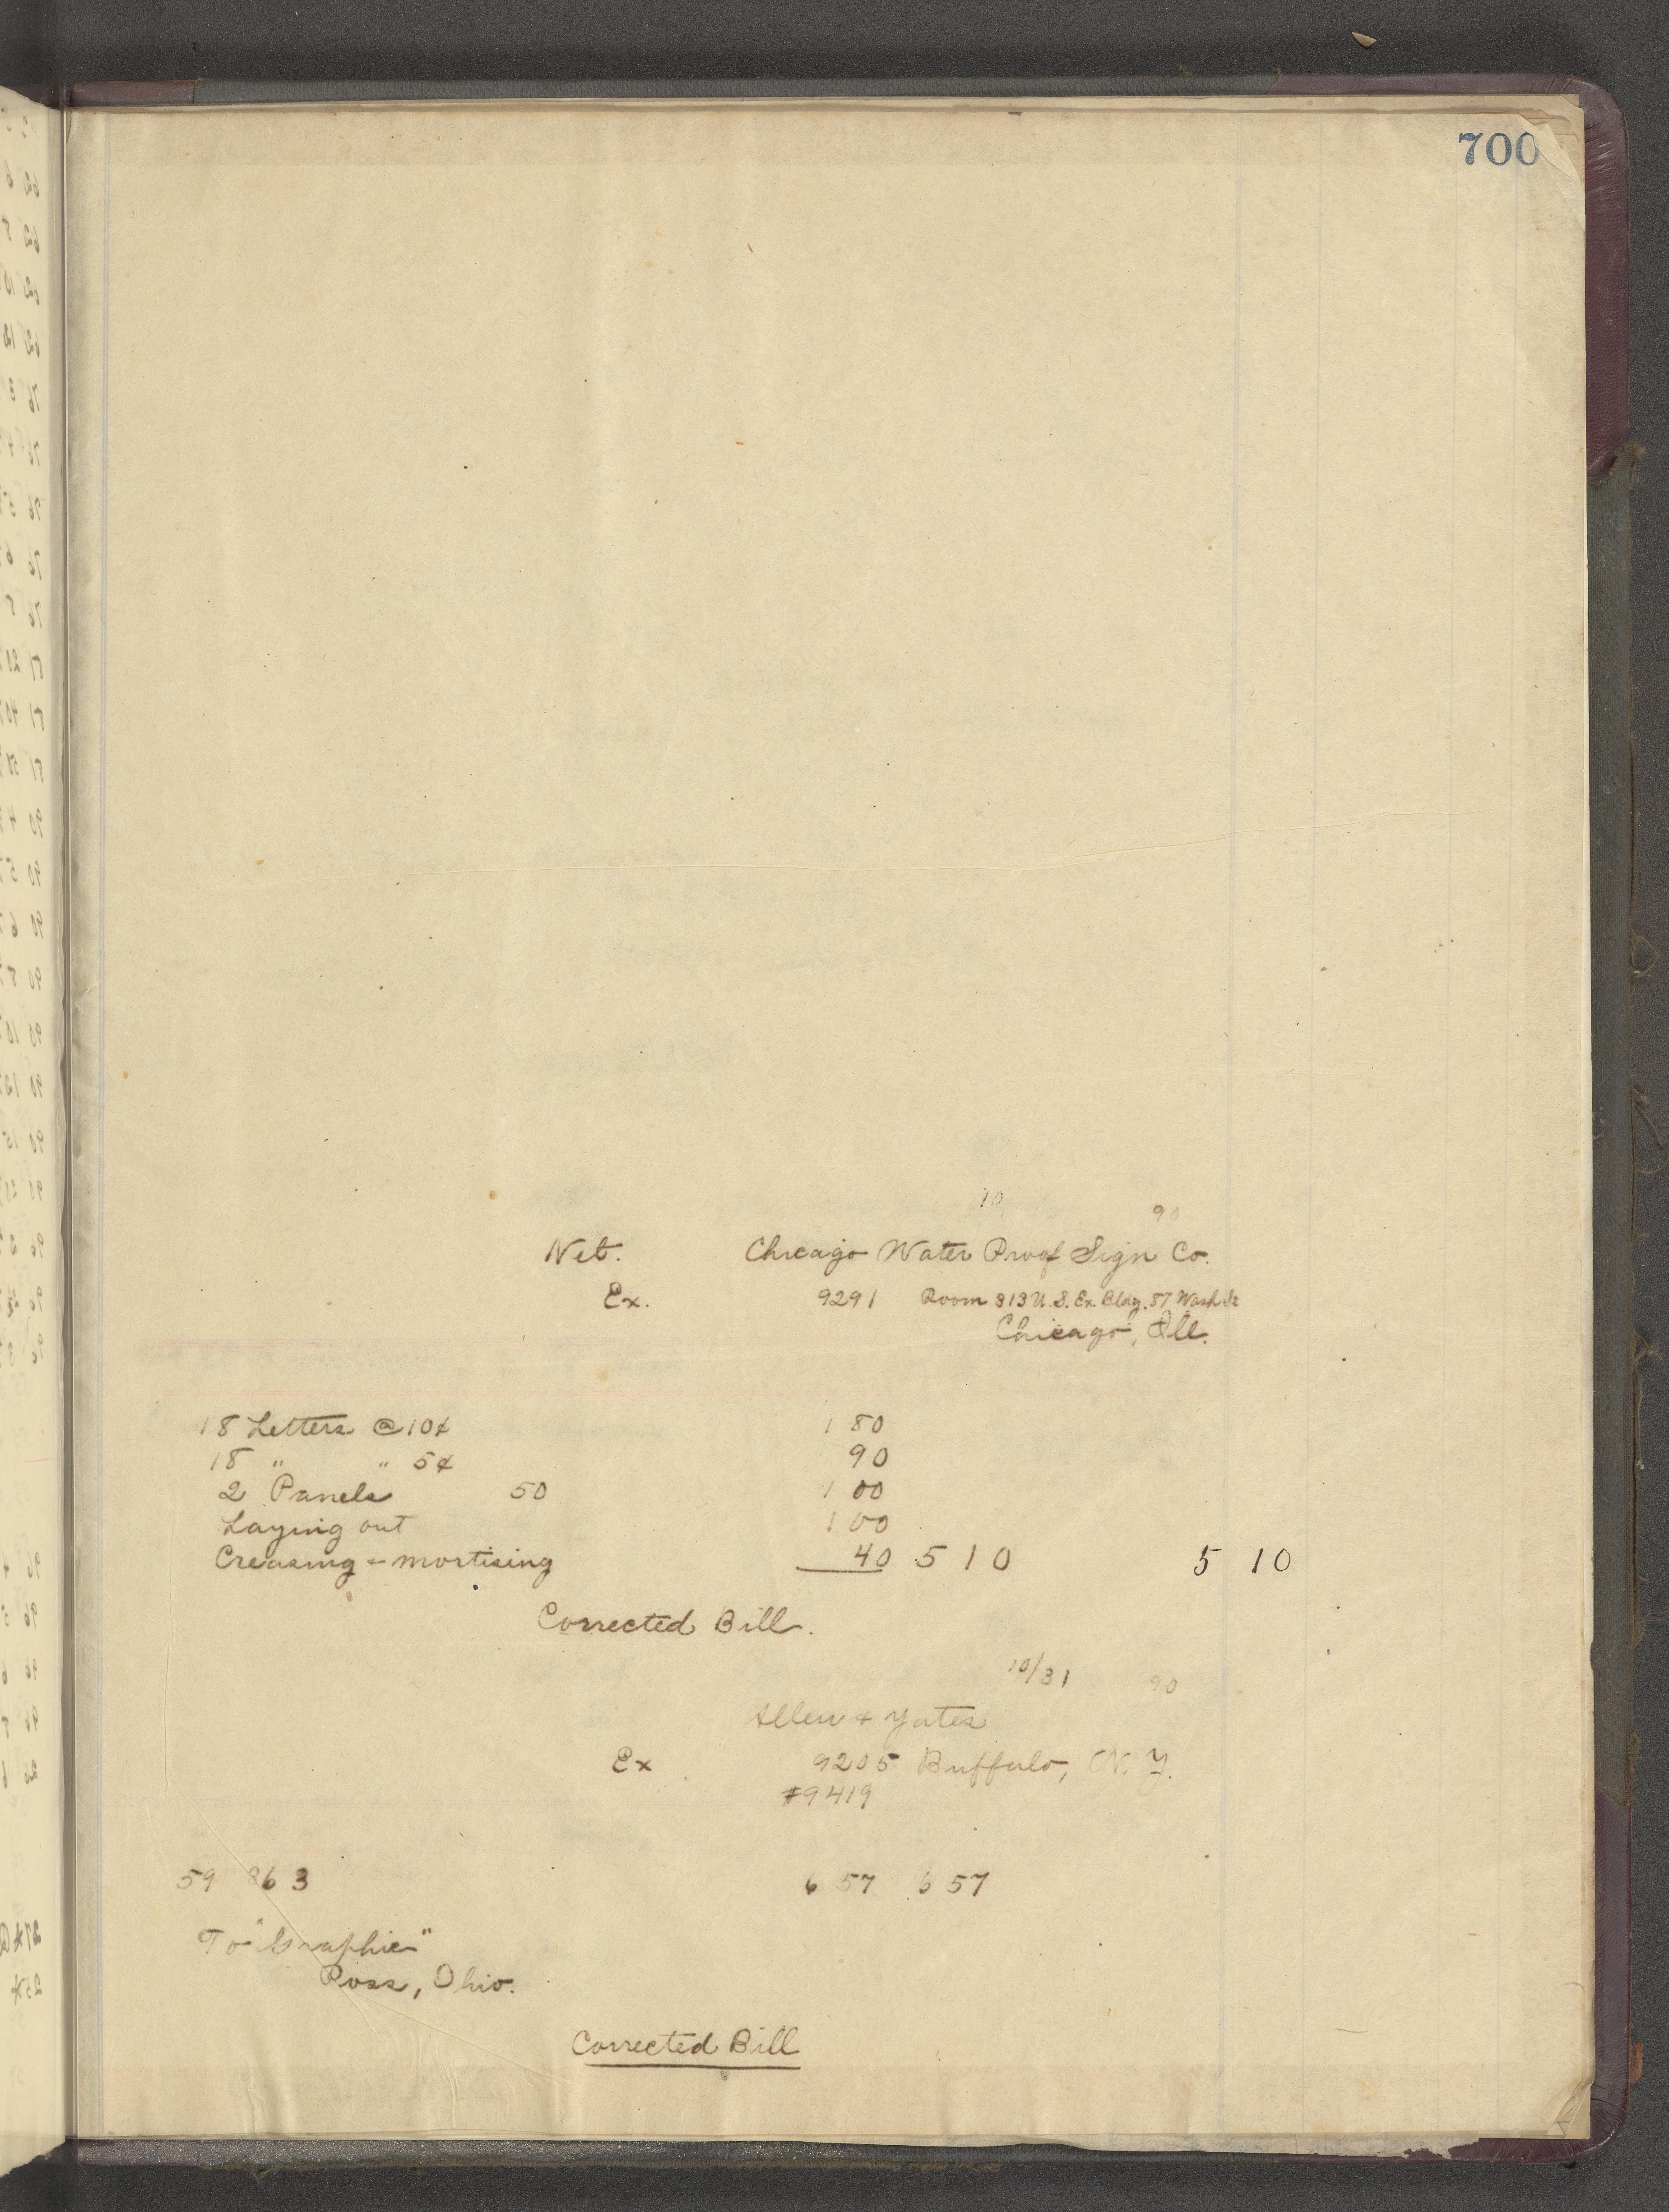 700
10 90
Net. Chicago Water Proof Sign Co.
Ex. 9291 Room 313 U.S. Ex Bldg. 87 Wash St
Chicago, Ill.
18 Letters @ 10¢ 1 80
18 " " 5¢ 90
2 Panels 50 1 00
Laying out 1 00
Creasing & mortising 40 5 10 5 10
Corrected Bill.
10/31 90
Allen & Yates
Ex 9205 Buffalo, N. Y.
#9419
59 863 6 57 6 57
To "Graphic"
Ross, Ohio.
Corrected Bill